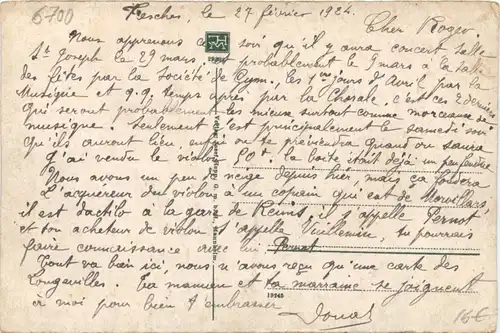 6700
Fesches, le 27 février 1924.
Cher Roger.
Nous apprenons ce soir qu'il y aura concert salle
St Joseph le 29 mars, et probablement le 9 mars à la salle
des fêtes par la société de Gym. les 1ers jours d'Avril par la
Musique et q.q. temps après par la Chorale. c'est ces 2 derniers
qui seront probablement les mieux surtout comme morceaux de
musique. Seulement c'est principalement le samedi soir
qu'ils auront lieu, enfin on te préviendra quand on saura
J'ai vendu le violon 80f. la boîte était déjà un peu fendue
Nous avons un peu de neige depuis hier, mais ça fondera
L'acquéreur du violon à un copain qui est de Morvillars,
il est dactilo à la gare de Reims, il s'appelle Pernot
et ton acheteur de violon s'appelle Vuillemin, tu pourrais
faire connaissance avec lui Pernot
Tout va bien ici, nous n'avons reçu qu'une carte des
Longevilles. Ta maman et ta marraine se joignent
à moi pour bien t'embrasser
19265
16€